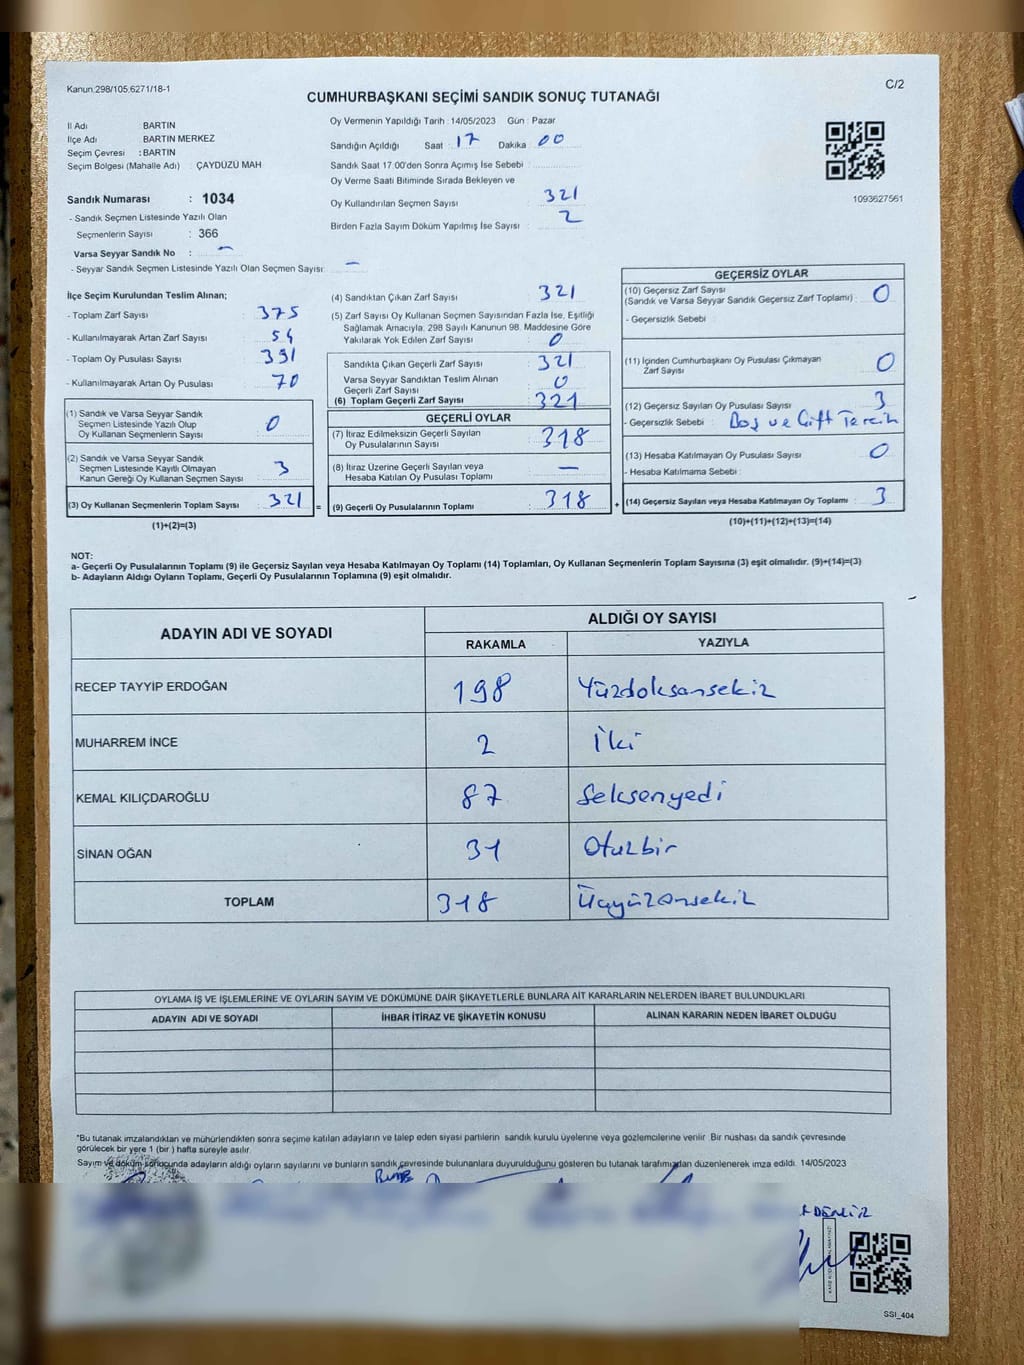 Kanun:298/105,6271/18-1
C/2
CUMHURBAŞKANI SEÇİMİ SANDIK SONUÇ TUTANAĞI
İl Adı : BARTIN
İlçe Adı : BARTIN MERKEZ
Seçim Çevresi : BARTIN
Seçim Bölgesi (Mahalle Adı) : ÇAYDÜZÜ MAH
Sandık Numarası : 1034
- Sandık Seçmen Listesinde Yazılı Olan
Seçmenlerin Sayısı : 366
Varsa Seyyar Sandık No : –
- Seyyar Sandık Seçmen Listesinde Yazılı Olan Seçmen Sayısı: –
Oy Vermenin Yapıldığı Tarih : 14/05/2023 Gün : Pazar
Sandığın Açıldığı Saat : 17 Dakika : 00
Sandık Saat 17.00'den Sonra Açımış İse Sebebi :
Oy Verme Saati Bitiminde Sırada Bekleyen ve
Oy Kullandırılan Seçmen Sayısı : 321
Birden Fazla Sayım Döküm Yapılmış İse Sayısı : 2
1093627561
İlçe Seçim Kurulundan Teslim Alınan;
- Toplam Zarf Sayısı : 375
- Kullanılmayarak Artan Zarf Sayısı : 54
- Toplam Oy Pusulası Sayısı : 391
- Kullanılmayarak Artan Oy Pusulası : 70
(1) Sandık ve Varsa Seyyar Sandık
Seçmen Listesinde Yazılı Olup
Oy Kullanan Seçmenlerin Sayısı : 0
(2) Sandık ve Varsa Seyyar Sandık
Seçmen Listesinde Kayıtlı Olmayan
Kanun Gereği Oy Kullanan Seçmen Sayısı : 3
(3) Oy Kullanan Seçmenlerin Toplam Sayısı : 321 =
(1)+(2)=(3)
(4) Sandıktan Çıkan Zarf Sayısı : 321
(5) Zarf Sayısı Oy Kullanan Seçmen Sayısından Fazla İse, Eşitliği
Sağlamak Amacıyla, 298 Sayılı Kanunun 98. Maddesine Göre
Yakılarak Yok Edilen Zarf Sayısı : 0
Sandıkta Çıkan Geçerli Zarf Sayısı : 321
Varsa Seyyar Sandıktan Teslim Alınan
Geçerli Zarf Sayısı : 0
(6) Toplam Geçerli Zarf Sayısı : 321
GEÇERLİ OYLAR
(7) İtiraz Edilmeksizin Geçerli Sayılan
Oy Pusulalarının Sayısı : 318
(8) İtiraz Üzerine Geçerli Sayılan veya
Hesaba Katılan Oy Pusulası Toplamı : –
(9) Geçerli Oy Pusulalarının Toplamı : 318 +
GEÇERSİZ OYLAR
(10) Geçersiz Zarf Sayısı
(Sandık ve Varsa Seyyar Sandık Geçersiz Zarf Toplamı) : 0
- Geçersizlik Sebebi :
(11) İçinden Cumhurbaşkanı Oy Pusulası Çıkmayan
Zarf Sayısı : 0
(12) Geçersiz Sayılan Oy Pusulası Sayısı : 3
- Geçersizlik Sebebi : Boş ve Çift Tercih
(13) Hesaba Katılmayan Oy Pusulası Sayısı : 0
- Hesaba Katılmama Sebebi :
(14) Geçersiz Sayılan veya Hesaba Katılmayan Oy Toplamı : 3
(10)+(11)+(12)+(13)=(14)
NOT:
a- Geçerli Oy Pusulalarının Toplamı (9) ile Geçersiz Sayılan veya Hesaba Katılmayan Oy Toplamı (14) Toplamları, Oy Kullanan Seçmenlerin Toplam Sayısına (3) eşit olmalıdır. (9)+(14)=(3)
b- Adayların Aldığı Oyların Toplamı, Geçerli Oy Pusulalarının Toplamına (9) eşit olmalıdır.
ADAYIN ADI VE SOYADI
ALDIĞI OY SAYISI
RAKAMLA YAZIYLA
RECEP TAYYİP ERDOĞAN 198 Yüzdoksansekiz
MUHARREM İNCE 2 İki
KEMAL KILIÇDAROĞLU 87 Seksenyedi
SİNAN OĞAN 31 Otuzbir
TOPLAM 318 Üçyüzonsekiz
OYLAMA İŞ VE İŞLEMLERİNE VE OYLARIN SAYIM VE DÖKÜMÜNE DAİR ŞİKAYETLERLE BUNLARA AİT KARARLARIN NELERDEN İBARET BULUNDUKLARI
ADAYIN ADI VE SOYADI İHBAR İTİRAZ VE ŞİKAYETİN KONUSU ALINAN KARARIN NEDEN İBARET OLDUĞU
*Bu tutanak imzalandıktan ve mühürlendikten sonra seçime katılan adayların ve talep eden siyasi partilerin sandık kurulu üyelerine veya gözlemcilerine verilir. Bir nüshası da sandık çevresinde
görülecek bir yere 1 (bir ) hafta süreyle asılır.
Sayım ve döküm sonucunda adayların aldığı oyların sayılarını ve bunların sandık çevresinde bulunanlara duyurulduğunu gösteren bu tutanak tarafımızdan düzenlenerek imza edildi. 14/05/2023
SSI_404